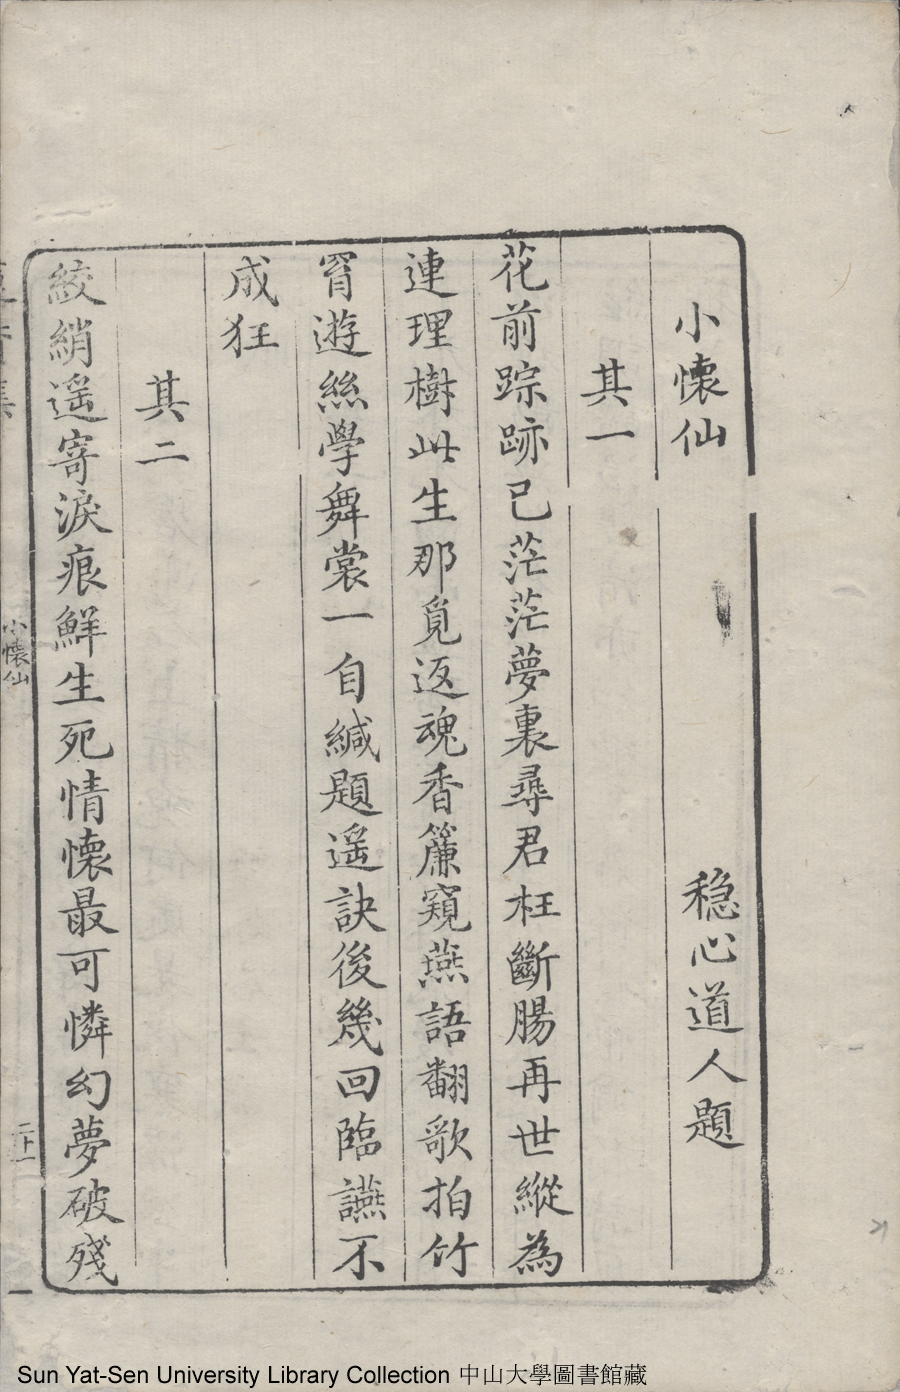 小懷仙
穏心道人題
其一
花前踪跡已茫茫夢裏尋君枉斷腸再世縱為
連理樹此生那覓返魂香簾窺燕語翻歌拍竹
罥遊絲學舞裳一自緘題遥訣後幾回臨讌不
成狂
其二
絞綃遥寄淚痕鮮生死情懷最可憐幻夢破殘
小懷仙
二十一
Sun Yat-Sen University Library Collection 中山大學圖書館藏